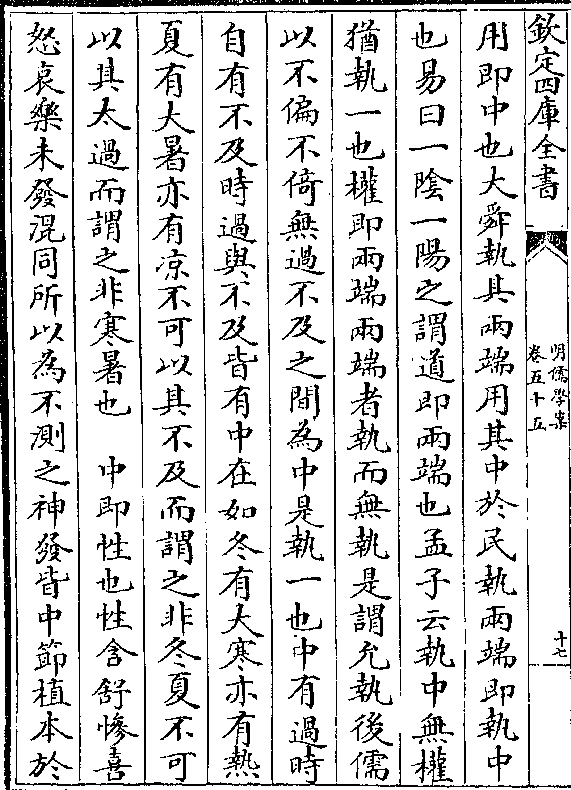 欽定四庫全書
明儒學案
卷五十五
十七
用即中也大舜執其兩端用其中於民執兩端即執中
也易曰一陰一陽之謂道即兩端也孟子云執中無權
猶執一也權即兩端兩端者執而無執是謂允執後儒
以不偏不倚無過不及之間為中是執一也中有過時
自有不及時過與不及皆有中在如冬有大寒亦有熱
夏有大暑亦有凉不可以其不及而謂之非冬夏不可
以其太過而謂之非寒暑也　中即性也性含舒慘喜
怒哀樂未發混同所以為不測之神發皆中節植本於